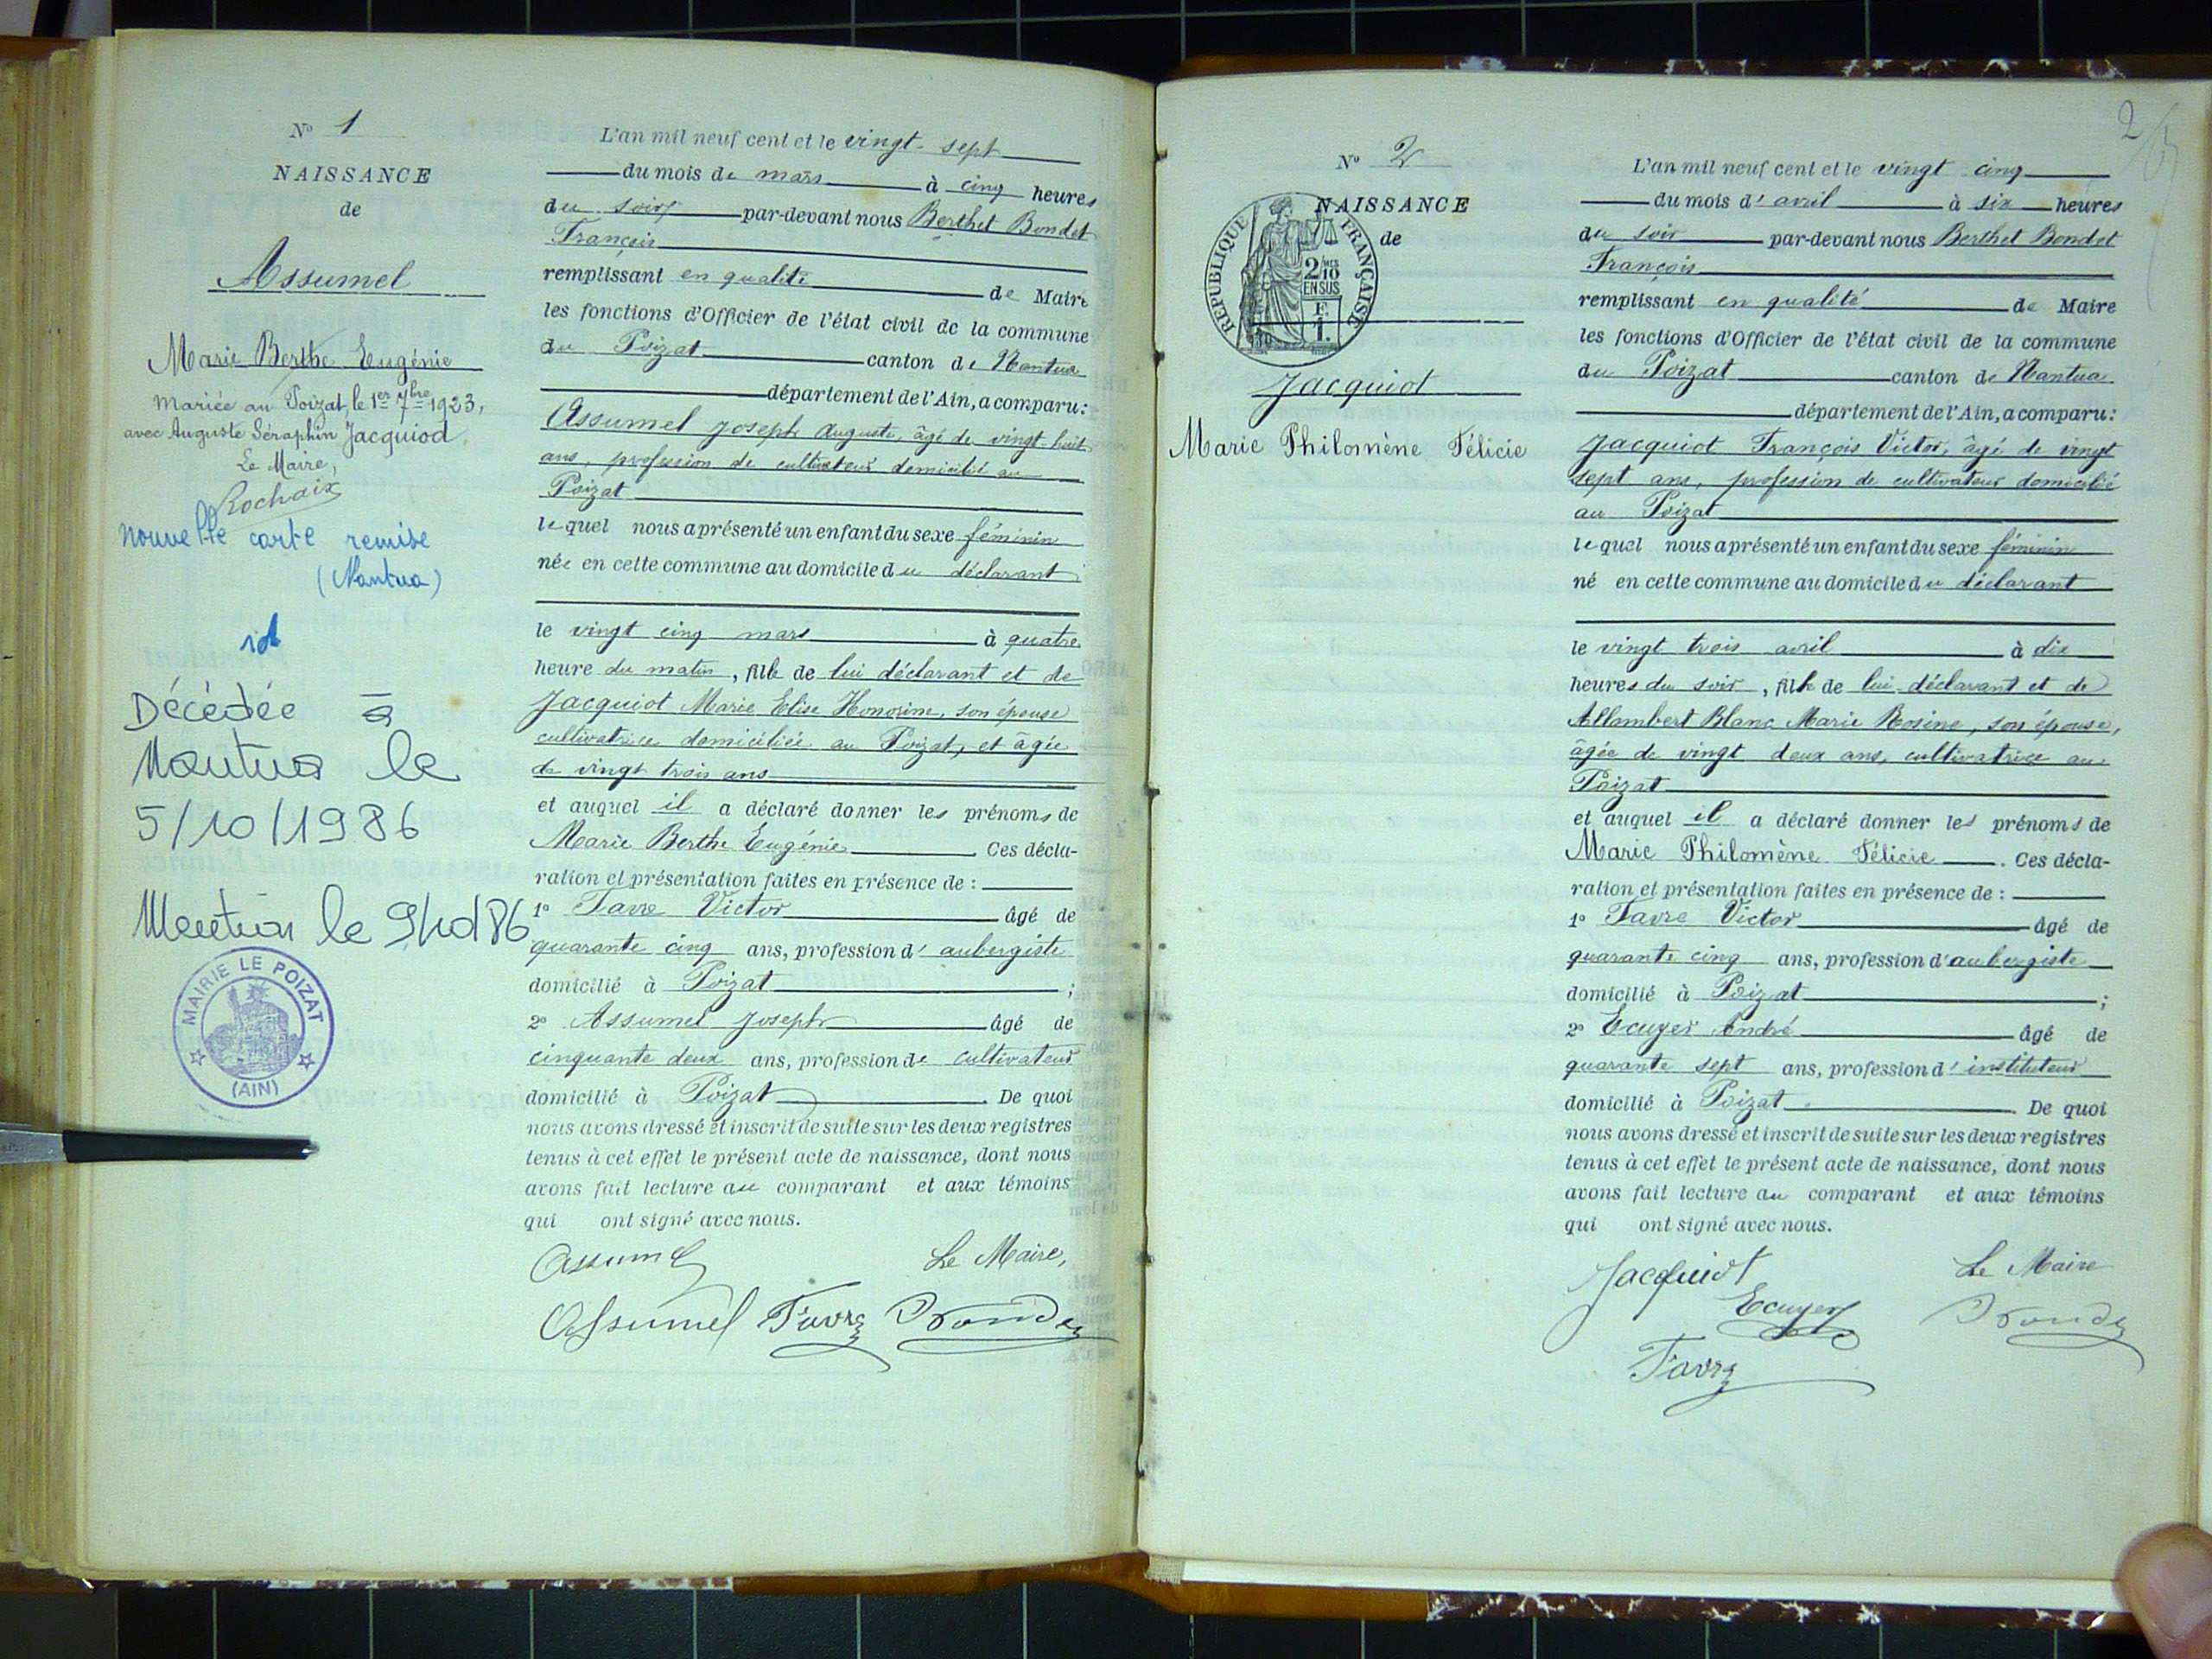 N° 1
NAISSANCE
de
Assumel
Marie Berthe Eugénie
Mariée au Poizat, le 1er 7bre 1923,
avec Auguste Séraphin Jacquiod.
Le Maire,
Rochaix
nouvelle carte remise
(Nantua)
id
Décédée à
Nantua le
5/10/1986
Mention le 9/10/86
MAIRIE LE POIZAT
(AIN)
L'an mil neuf cent et le vingt-sept
du mois de mars à cinq heures
du soir par-devant nous Berthet Bondet
François
remplissant en qualité de Maire
les fonctions d'Officier de l'état civil de la commune
du Poizat canton de Nantua
département de l'Ain, a comparu:
Assumel Joseph Auguste, âgé de vingt-huit
ans, profession de cultivateur domicilié au
Poizat
lequel nous a présenté un enfant du sexe féminin
née en cette commune au domicile du déclarant
le vingt cinq mars à quatre
heure du matin, fille de lui déclarant et de
Jacquiot Marie Elise Honorine, son épouse
cultivatrice domiciliée au Poizat, et âgée
de vingt trois ans
et auquel il a déclaré donner les prénoms de
Marie Berthe Eugénie. Ces décla-
ration et présentation faites en présence de :
1° Favre Victor âgé de
quarante cinq ans, profession d'aubergiste
domicilié à Poizat ;
2° Assumel Joseph âgé de
cinquante deux ans, profession de cultivateur
domicilié à Poizat. De quoi
nous avons dressé et inscrit de suite sur les deux registres
tenus à cet effet le présent acte de naissance, dont nous
avons fait lecture au comparant et aux témoins
qui ont signé avec nous.
Assumel Le Maire,
Assumel Favre
2
N° 2
NAISSANCE
de
RÉPUBLIQUE FRANÇAISE
2/10
EN SUS
F.
1.
Jacquiot
Marie Philomène Félicie
L'an mil neuf cent et le vingt cinq
du mois d'avril à six heures
du soir par-devant nous Berthet Bondet
François
remplissant en qualité de Maire
les fonctions d'Officier de l'état civil de la commune
du Poizat canton de Nantua
département de l'Ain, a comparu:
Jacquiot François Victor, âgé de vingt
sept ans, profession de cultivateur domicilié
au Poizat
lequel nous a présenté un enfant du sexe féminin
né en cette commune au domicile du déclarant
le vingt trois avril à dix
heures du soir, fille de lui déclarant et de
Allombert Blanc Marie Rosine, son épouse,
âgée de vingt deux ans, cultivatrice au
Poizat
et auquel il a déclaré donner les prénoms de
Marie Philomène Félicie. Ces décla-
ration et présentation faites en présence de :
1° Favre Victor âgé de
quarante cinq ans, profession d'aubergiste
domicilié à Poizat ;
2° Ecuyer André âgé de
quarante sept ans, profession d'instituteur
domicilié à Poizat. De quoi
nous avons dressé et inscrit de suite sur les deux registres
tenus à cet effet le présent acte de naissance, dont nous
avons fait lecture au comparant et aux témoins
qui ont signé avec nous.
Jacquiot Le Maire
Ecuyer
Favre